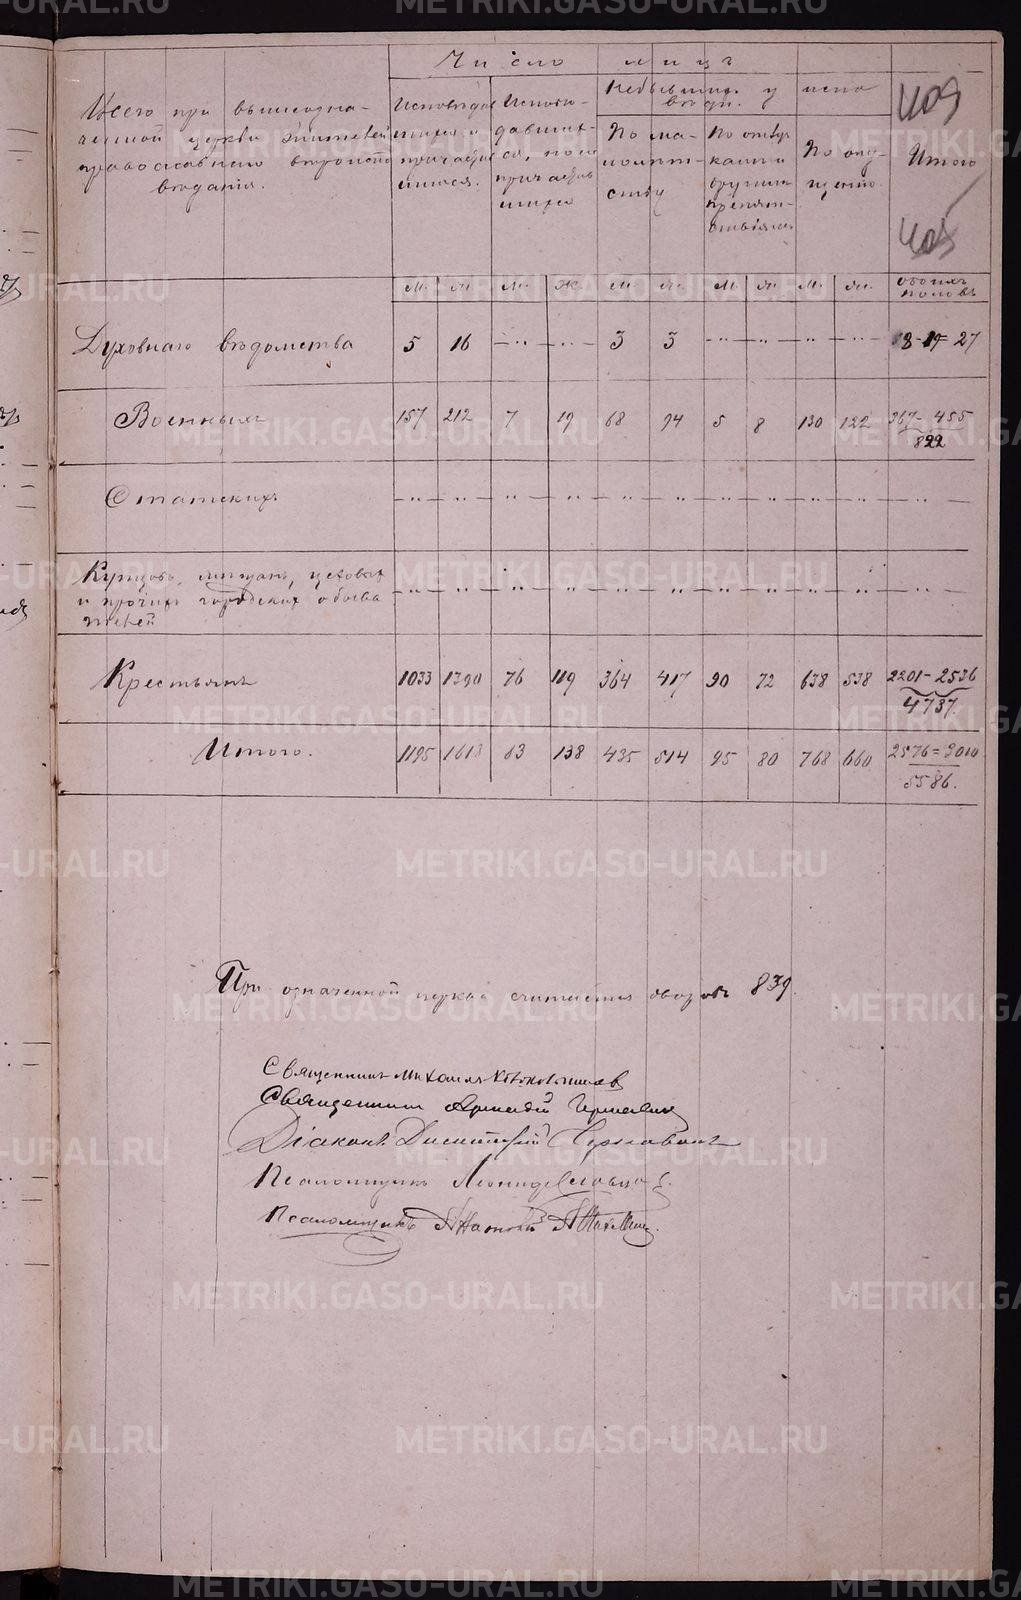 Число лицъ
409
Всего при вышеозна-
ченной церкви жителей
православнаго вероиспо
ведания.
Исповедав
шихся и
причастив
шихся.
Исповѣ-
давших-
ся, но не
причастив
шихся
Небывших у испо
вѣди.
По ма-
лолѣт-
ству
По отлуч
камъ и
другимъ
препят-
ствіямъ
По опу-
щенію.
Итого
405
М. Ж. М. Ж. М. Ж. М. Ж. М. Ж. обоихъ половъ
Духовнаго вѣдомства 5 16 — " — " — 3 3 — " — " — " — " — 8-19 27
Военныхъ 157 212 7 19 68 94 5 8 130 122 367-455
822
Статскихъ — " — " — " — " — " — " — " — " — " — " — " —
Купцовъ, мещанъ, цеховых
и прочихъ городских обыва
телей — " — " — " — " — " — " — " — " — " — " — " —
Крестьянъ 1033 1390 76 119 364 417 90 72 638 538 2201-2536
4737
Итого. 1195 1618 83 138 435 514 95 80 768 660 2576=3010
5586.
При означенной церкви считается дворовъ 839.
Священникъ Михаилъ
Священникъ Аркадій
Діаконъ Димитрій
Псаломщикъ Леонид
Псаломщикъ Анатолій
METRIKI.GASO-URAL.RU